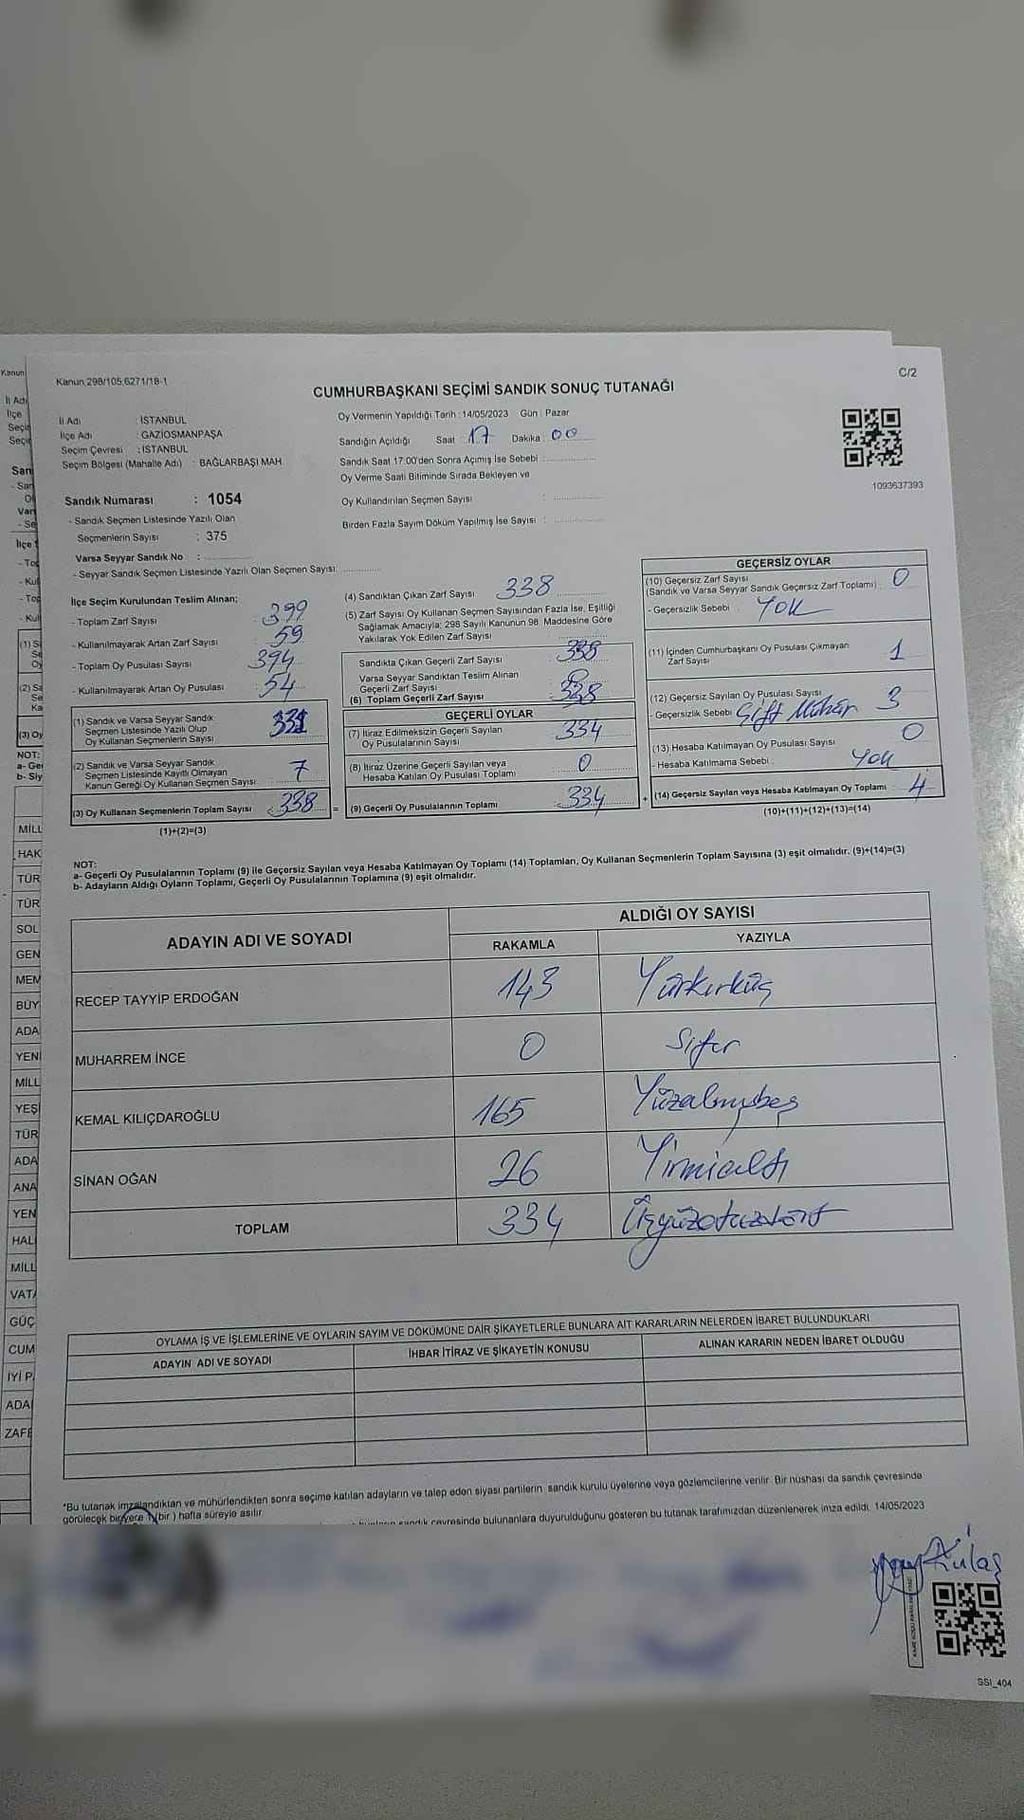 Kanun 298/105,6271/18-1
C/2
CUMHURBAŞKANI SEÇİMİ SANDIK SONUÇ TUTANAĞI
İl Adı : İSTANBUL
İlçe Adı : GAZİOSMANPAŞA
Seçim Çevresi : İSTANBUL
Seçim Bölgesi (Mahalle Adı) : BAĞLARBAŞI MAH.
Sandık Numarası : 1054
- Sandık Seçmen Listesinde Yazılı Olan
Seçmenlerin Sayısı : 375
Varsa Seyyar Sandık No :
- Seyyar Sandık Seçmen Listesinde Yazılı Olan Seçmen Sayısı:
Oy Vermenin Yapıldığı Tarih : 14/05/2023 Gün : Pazar
Sandığın Açıldığı Saat 17 Dakika : 00
Sandık Saat 17:00'den Sonra Açılmış İse Sebebi :
Oy Verme Saati Bitiminde Sırada Bekleyen ve
Oy Kullandırılan Seçmen Sayısı :
Birden Fazla Sayım Döküm Yapılmış İse Sayısı :
1093637393
İlçe Seçim Kurulundan Teslim Alınan;
- Toplam Zarf Sayısı 399
- Kullanılmayarak Artan Zarf Sayısı 59
- Toplam Oy Pusulası Sayısı 394
- Kullanılmayarak Artan Oy Pusulası 54
(1) Sandık ve Varsa Seyyar Sandık
Seçmen Listesinde Yazılı Olup
Oy Kullanan Seçmenlerin Sayısı 331
(2) Sandık ve Varsa Seyyar Sandık
Seçmen Listesinde Kayıtlı Olmayan
Kanun Gereği Oy Kullanan Seçmen Sayısı 7
(3) Oy Kullanan Seçmenlerin Toplam Sayısı 338 =
(1)+(2)=(3)
(4) Sandıktan Çıkan Zarf Sayısı 338
(5) Zarf Sayısı Oy Kullanan Seçmen Sayısından Fazla İse, Eşitliği
Sağlamak Amacıyla; 298 Sayılı Kanunun 98. Maddesine Göre
Yakılarak Yok Edilen Zarf Sayısı
Sandıkta Çıkan Geçerli Zarf Sayısı 338
Varsa Seyyar Sandıktan Teslim Alınan
Geçerli Zarf Sayısı 0
(6) Toplam Geçerli Zarf Sayısı 338
GEÇERLİ OYLAR
(7) İtiraz Edilmeksizin Geçerli Sayılan
Oy Pusulalarının Sayısı 334
(8) İtiraz Üzerine Geçerli Sayılan veya
Hesaba Katılan Oy Pusulası Toplamı 0
(9) Geçerli Oy Pusulalarının Toplamı 334 +
GEÇERSİZ OYLAR
(10) Geçersiz Zarf Sayısı 0
(Sandık ve Varsa Seyyar Sandık Geçersiz Zarf Toplamı)
- Geçersizlik Sebebi YOK
(11) İçinden Cumhurbaşkanı Oy Pusulası Çıkmayan
Zarf Sayısı 1
(12) Geçersiz Sayılan Oy Pusulası Sayısı 3
- Geçersizlik Sebebi Çift Mühür
(13) Hesaba Katılmayan Oy Pusulası Sayısı 0
- Hesaba Katılmama Sebebi : YOK
(14) Geçersiz Sayılan veya Hesaba Katılmayan Oy Toplamı 4
(10)+(11)+(12)+(13)=(14)
NOT:
a- Geçerli Oy Pusulalarının Toplamı (9) ile Geçersiz Sayılan veya Hesaba Katılmayan Oy Toplamı (14) Toplamları, Oy Kullanan Seçmenlerin Toplam Sayısına (3) eşit olmalıdır. (9)+(14)=(3)
b- Adayların Aldığı Oyların Toplamı, Geçerli Oy Pusulalarının Toplamına (9) eşit olmalıdır.
ADAYIN ADI VE SOYADI
ALDIĞI OY SAYISI
RAKAMLA YAZIYLA
RECEP TAYYİP ERDOĞAN 143 Yüzkırküç
MUHARREM İNCE 0 Sıfır
KEMAL KILIÇDAROĞLU 165 Yüzaltmışbeş
SİNAN OĞAN 26 Yirmialtı
TOPLAM 334 Üçyüzotuzdört
OYLAMA İŞ VE İŞLEMLERİNE VE OYLARIN SAYIM VE DÖKÜMÜNE DAİR ŞİKAYETLERLE BUNLARA AİT KARARLARIN NELERDEN İBARET BULUNDUKLARI
ADAYIN ADI VE SOYADI
İHBAR İTİRAZ VE ŞİKAYETİN KONUSU
ALINAN KARARIN NEDEN İBARET OLDUĞU
*Bu tutanak imzalandıktan ve mühürlendikten sonra seçime katılan adayların ve talep eden siyasi partilerin sandık kurulu üyelerine veya gözlemcilerine verilir. Bir nüshası da sandık çevresinde
görülecek bir yere 1 (bir ) hafta süreyle asılır.
sandık çevresinde bulunanlara duyurulduğunu gösteren bu tutanak tarafımızdan düzenlenerek imza edildi. 14/05/2023
SSI_404